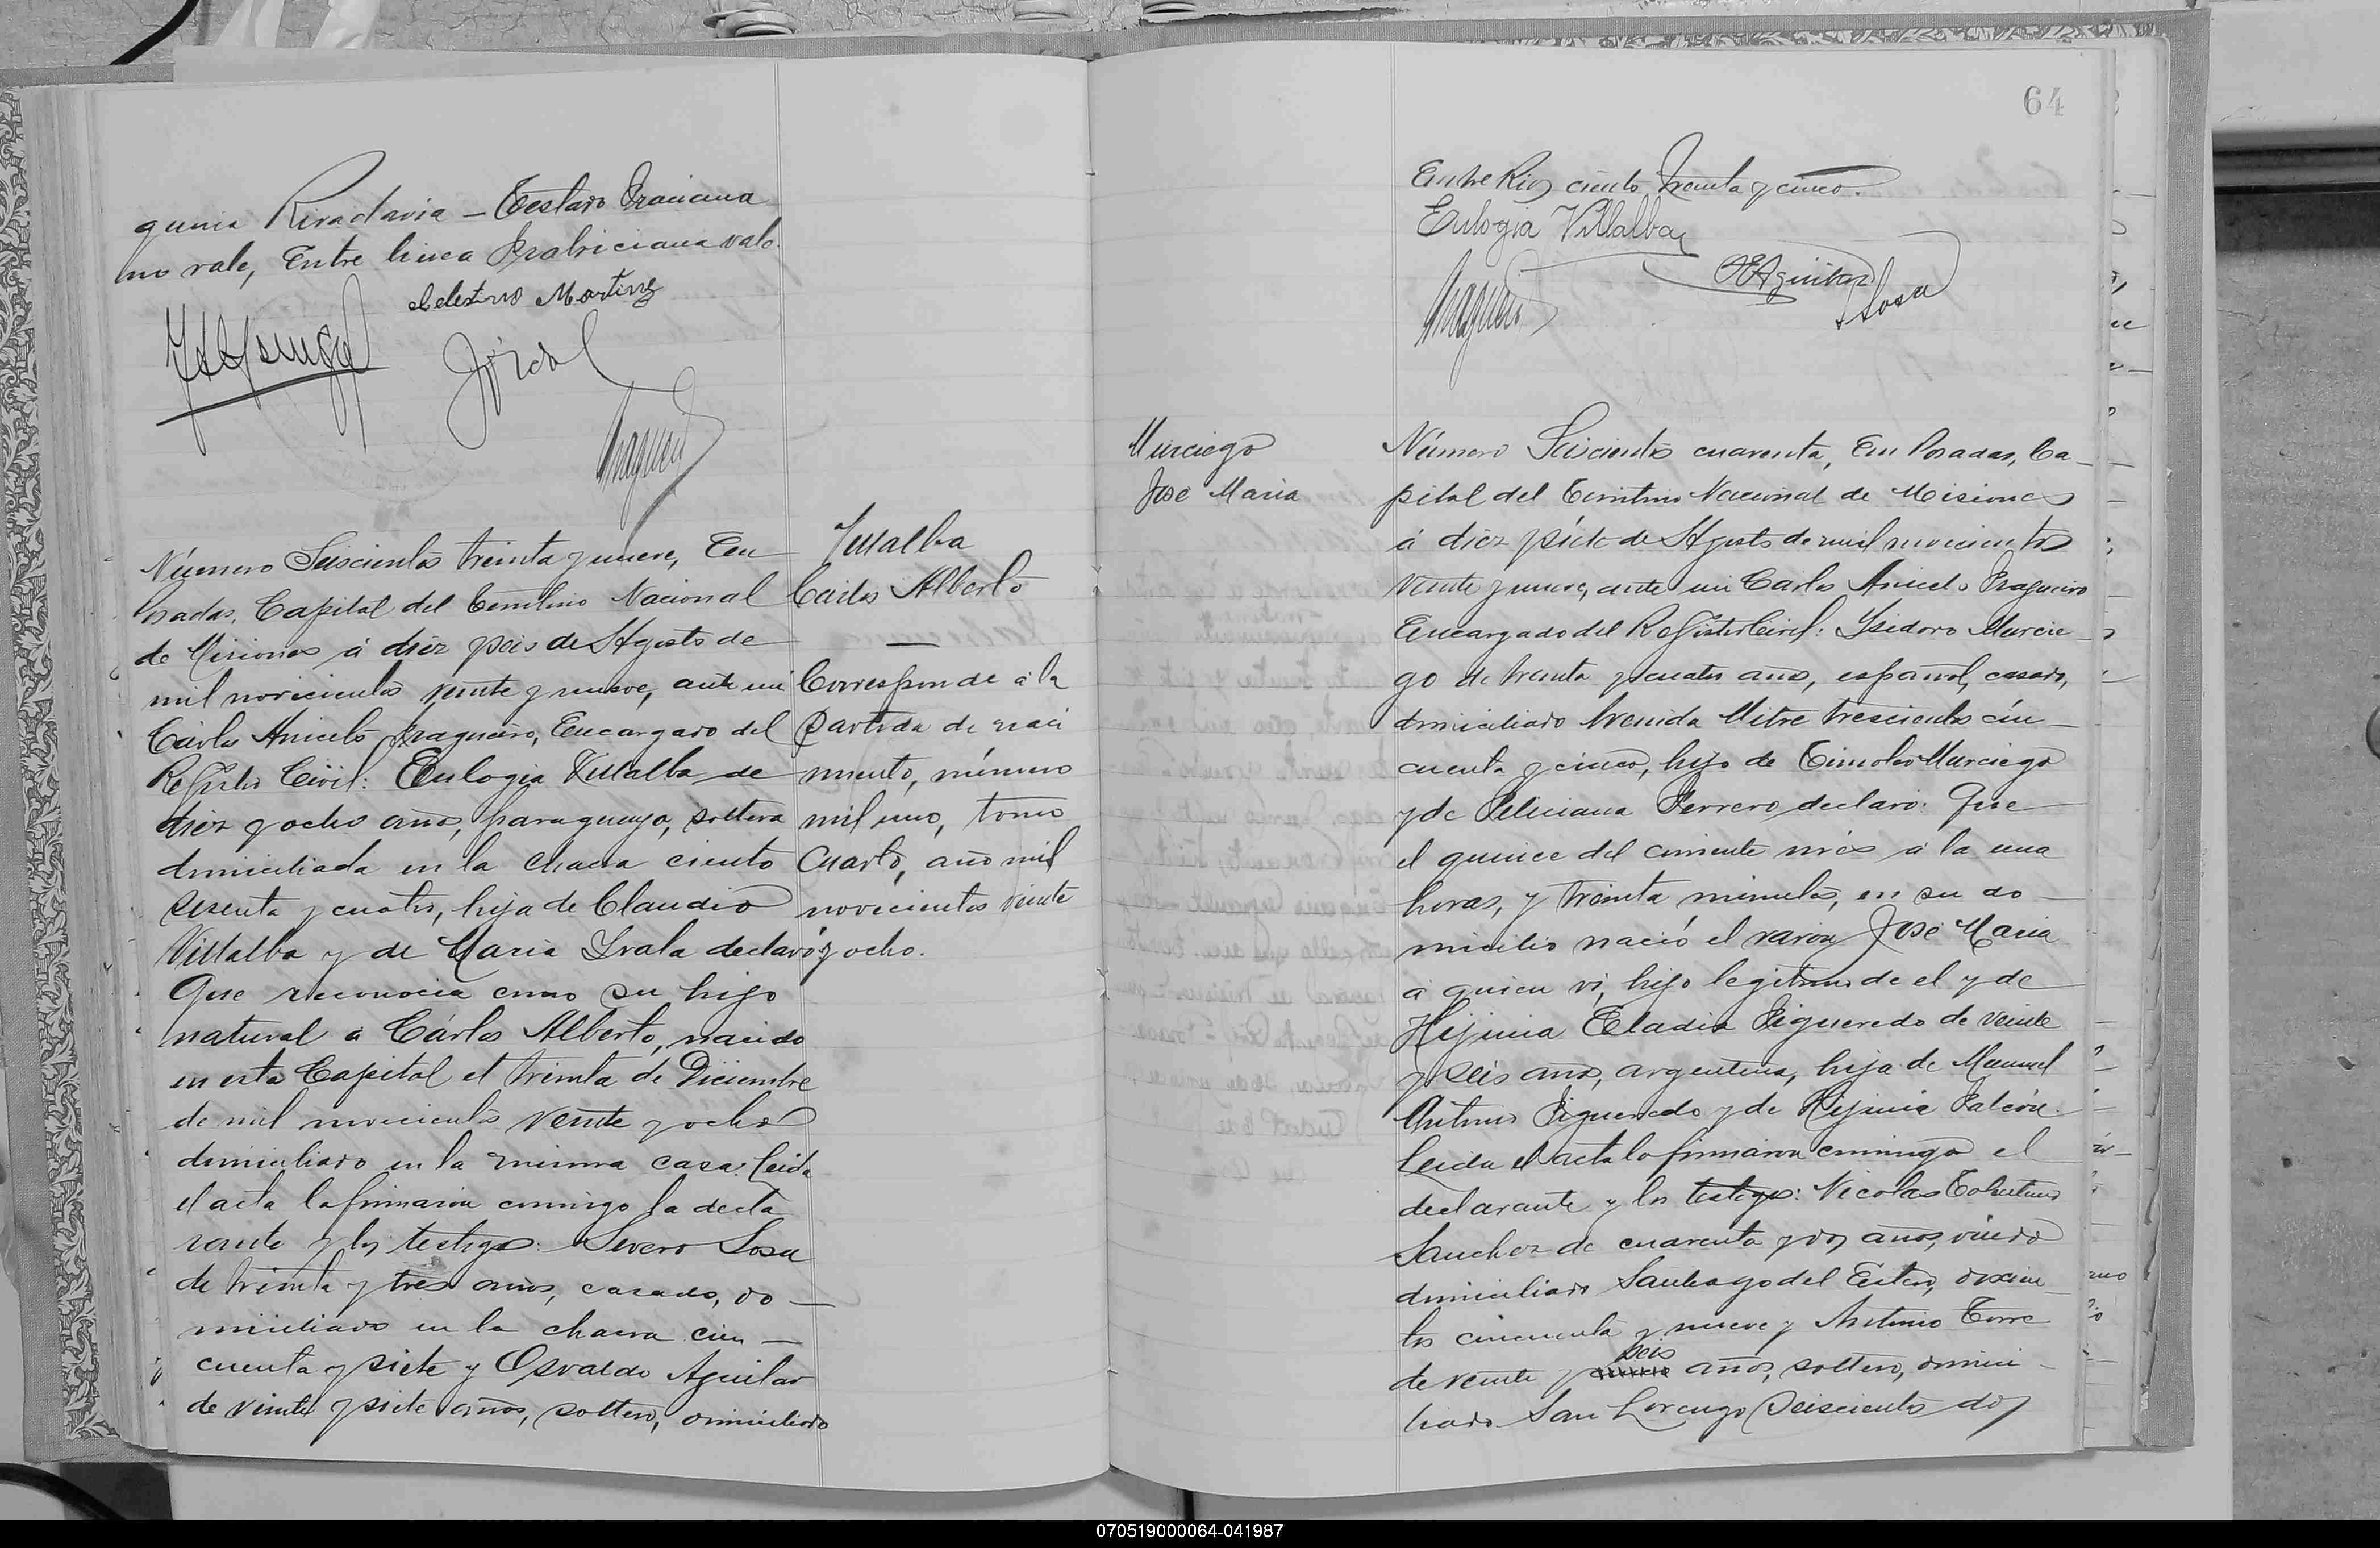 quina Rivadavia - Testado Graciana
no vale, Entre linea Patriciana vale.
Celestino Martinez
Número Seiscientos treinta y nueve, En
Posadas, Capital del Territorio Nacional
de Misiones á diez y seis de Agosto de
mil novecientos veinte y nueve, ante mi
Cárlos Aniceto Fragueiro, Encargado del
Registro Civil: Eulogia Villalba de
diez y ocho años, paraguaya, soltera
domiciliada en la chacra ciento
sesenta y cuatro, hija de Claudio
Villalba y de Maria Irala declaró:
Que reconocia como su hijo
natural á Cárlos Alberto, nacido
en esta Capital el treinta de Diciembre
de mil novecientos veinte y ocho
domiciliado en la misma casa. Leida
el acta la firmaron conmigo la decla
rante y los testigos: Severo Sosa
de treinta y tres años, casado, do-
miciliado en la chacra cin-
cuenta y siete y Osvaldo Aguilar
de veinte y siete años, soltero, domiciliado
Villalba
Carlos Alberto
Corresponde á la
Partida de naci
miento, número
mil uno, tomo
Cuarto, año mil
novecientos veinte
y ocho.
64
Entre Rios ciento treinta y cinco.
Eulogia Villalba
OEAguilar
Sosa
Murciego
José Maria
Número Seiscientos cuarenta, En Posadas, Ca-
pital del Territorio Nacional de Misiones
á diez y siete de Agosto de mil novecientos
veinte y nueve, ante mi Carlos Aniceto Fragueiro
Encargado del Registro Civil: Ysidoro Murcie-
go de treinta y cuatro años, español, casado,
domiciliado Avenida Mitre trescientos cin-
cuenta y cinco, hijo de Timoteo Murciego
y de Feliciana Ferrero declaró: Que
el quince del corriente mes á la una
horas, y treinta minutos, en su do-
micilio nació el varon José Maria
á quien vi, hijo legitimo de el y de
Hijinia Eladia Figueredo de veinte
y seis años, argentina, hija de Manuel
Antonio Figueredo y de Hijinia Falcón.
Leida el acta la firmaron conmigo el
declarante y los testigos: Nicolas Tolentino
Sanchez de cuarenta y dos años, viudo
domiciliado Santiago del Estero, doscien-
tos cincuenta y nueve y Antonio Torre
seis
de veinte y años, soltero, domici-
liado San Lorenzo Seiscientos dos
070519000064-041987